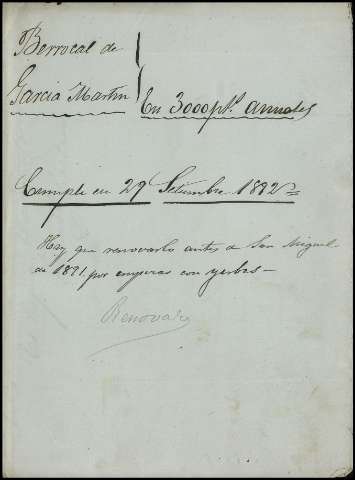 Berrocal de
Garcia Martin
En 3000 pts. anuales
Cumple en 29 Setiembre 1892=
Hay que renovarlo antes de San Miguel
de 1891, por empezar con yerbas—
Renovado